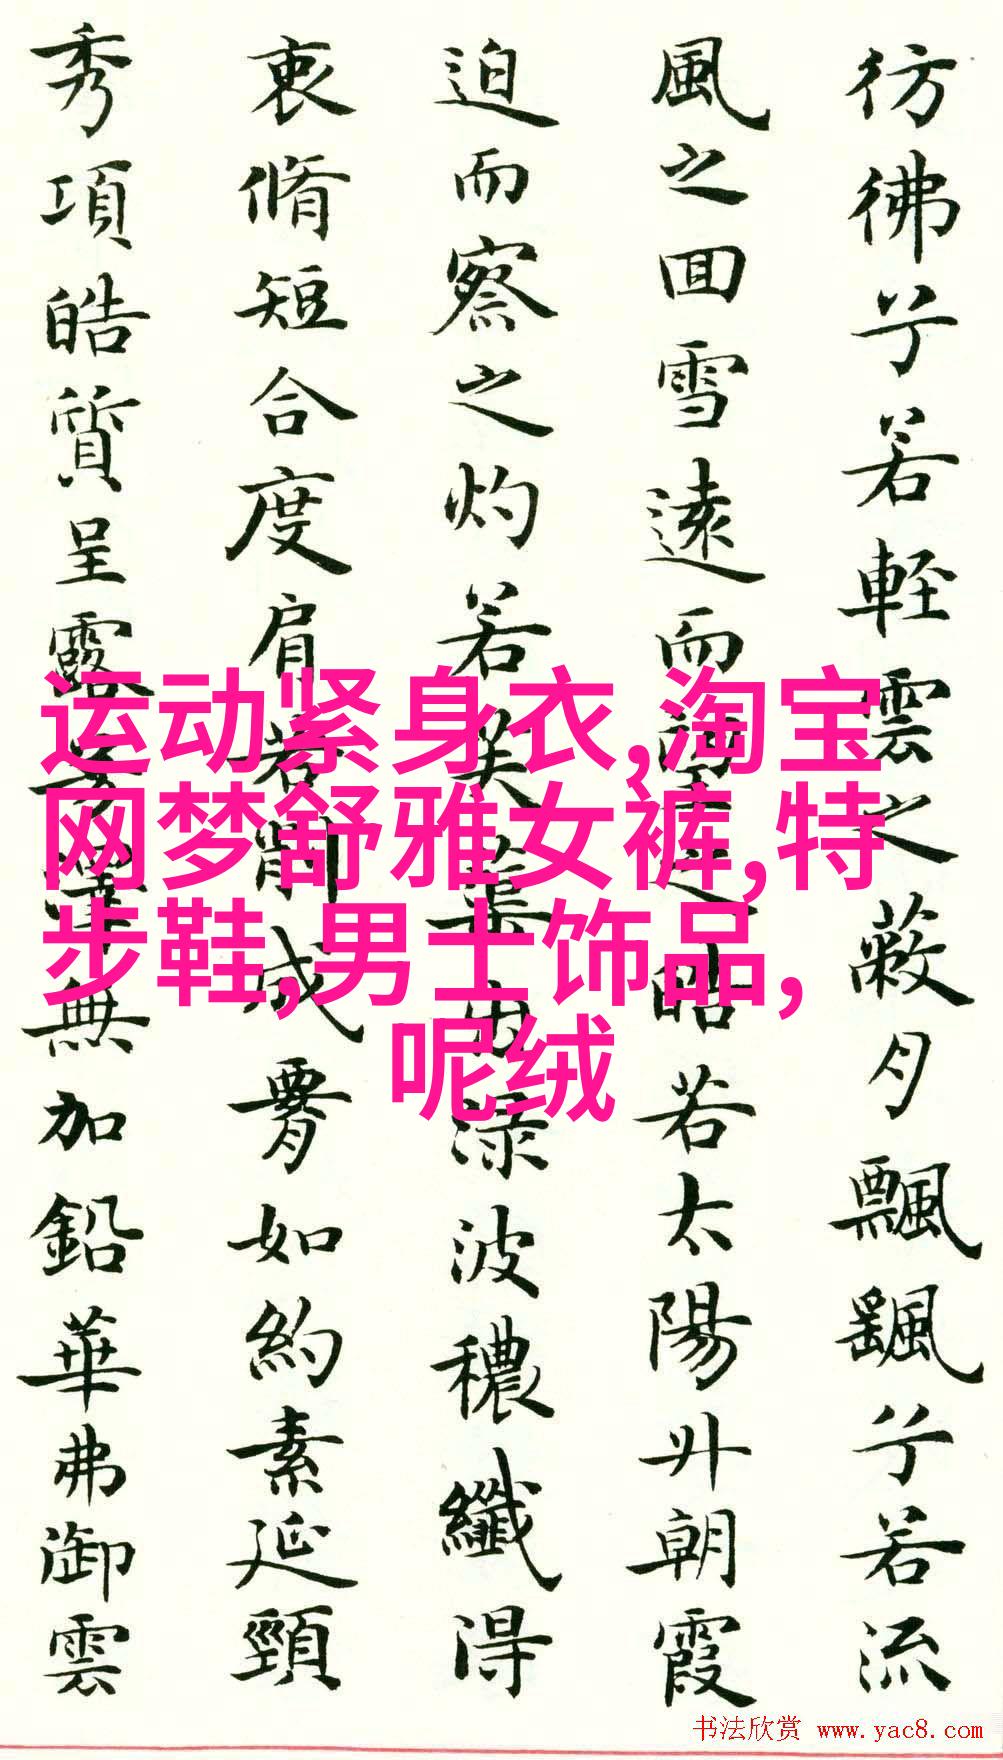 彷彿兮若輕雲之蔽月飄颻兮若流
風之回雪遠而望之若太陽升朝霞
迫而察之灼若芙蕖出淥波穠纖得
衷脩短合度肩若削成腰如約素延頸
秀項皓質呈露芳澤無加鉛華弗御雲
运动紧身衣,淘宝
网梦舒雅女裤,特
步鞋,男士饰品,
呢绒
书法欣赏 www.yac8.com